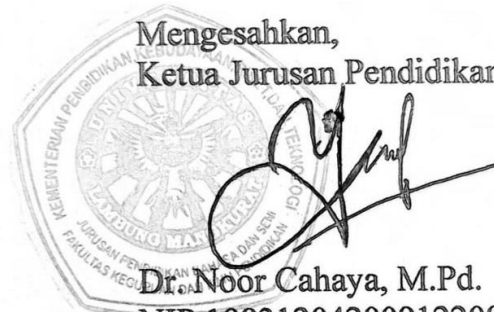 Mengesahkan,
Ketua Jurusan Pendidikan
KEMENTERIAN PENDIDIKAN KEBUDAYAAN RISET DAN TEKNOLOGI
LAMBUNG MANGKURAT
JURUSAN PENDIDIKAN BAHASA DAN SENI
FAKULTAS KEGURUAN DAN ILMU PENDIDIKAN
Dr. Noor Cahaya, M.Pd.